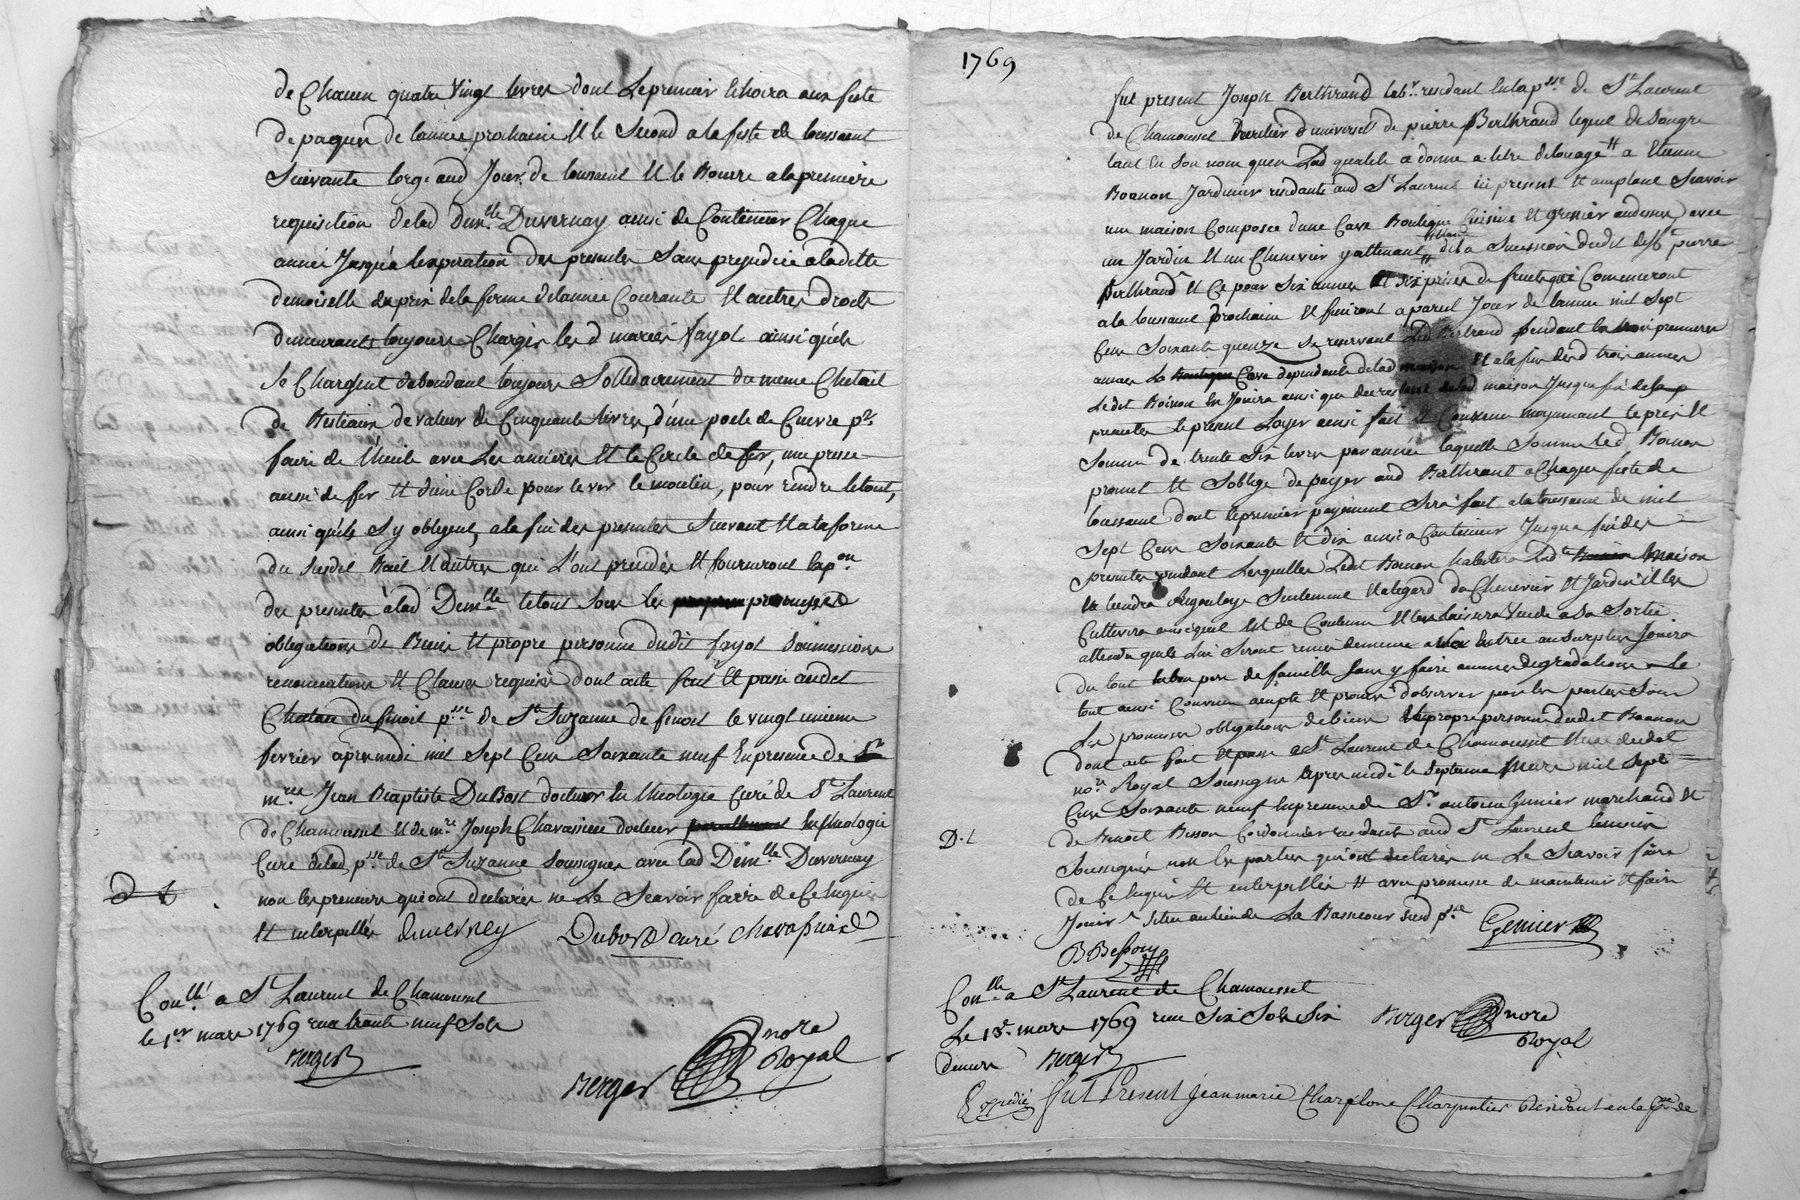 de Chacun quatre vingt livres dont le premier echoira aux feste
de paques de lannee prochaine et le second a la feste de toussaint
suivante lorge aud jour de toussaint et le Beurre a la premiere
requisition de lad dem.lle Duvernay ainsi de Continuer Chaque
année jusqu'a lexpiration des presentes sans prejudice a laditte
demoiselle du prix de la ferme de lannee Courante et autres droits
demeurants toujours Chargés les d mariés fayol ainsi quils
se Chargent dabondant toujours sollidairement du meme Chetail
de Bestiaux de valeur de Cinquante livres, d'une poele de Cuivre p.r
faire de l'huile avec les et le Cercle de fer, une presse
aussi de fer et d'une Corde pour lever le moulin, pour rendre le tout,
ainsi qu'ils s'y obligent, a la fin des presentes suivant et a la forme
du susdit Bail et autres qui l'ont precedés et fourniront lap.on
des presentes a lad Dem.lle le tout sous les promesses
obligations de Biens et propre personne dudit fayol soumissions
renonciations et Clauses requises dont acte fait et passé audit
Chateau du finoil p.sse de S.te Suzanne de finoil le vingt unieme
fevrier apres midi mil sept Cens soixante neuf en presence de
m.re Jean Baptiste DuBost docteur en theologie Curé de S.t Laurent
de Chamousset et de m.re Joseph Chavassieu docteur en theologie
Cure de lad p.sse de S.te Suzanne soussignes avec lad Dem.lle Duvernay
non les preneurs qui ont declarés ne le scavoir faire de Ce enquis
et interpellés Duverney Dubost curé chavassieu
D t
Con.llé a S.t Laurent de Chamousset
le 1.er mars 1769 recu trente neuf sols
Berger
Berger nore
Royal
1769
fut present Joseph Berthrand lab.r residant en la p.sse de S.t Laurent
de Chamousset heritier d'universel de pierre Berthrand lequel de son gre
tant en son nom quen lad qualité a donne a titre de louage a Etienne
Boanon Jardinier residante aud S.t Laurent ici present et acceptant scavoir
une maison Composee dune Cave Boutique Cuisine et grenier au dessus, avec
un Jardin et un Chenevier y attenant de la sucession dudit deff.t pierre
Berthrand et Ce pour six annees et six prises de fruits qui Comenceront
a la toussaint prochaine et finiront a pareil jour de lannee mil sept
Cens soixante quinze se reservant led Bertrand pendant les trois premieres
annees la Cave dependante de lad maison et a la fin desd trois annees
Ledit Boanon en jouira ainsi que du restant de lad maison jusqua fin des
presentes le present loyer ainsi fait et Convenu moyennant le prix et
somme de trente six livres par année laquelle somme led Boanon
promet et soblige de payer aud Berthrand a Chaque feste de
toussaint dont le premier payement sera fait a la toussaint de mil
sept Cens soixante et dix ainsi a Continuer jusqua fin des
presentes pendant lesquelles ledit Boanon habitera lad.te maison
et tiendra seulement et a legard du Chenevier et Jardin il les
Cultivera ainsi quil est de Coutume et les laissera vuide a sa sortie
attendu quils lui seront remis de meme a son entree au surplus jouira
du tout en bon pere de famille sans y faire aucunes degradations le
tout ainsi Convenu accepté et promis d'observer par les parties sous
les promesses obligations de biens et propre personne dudit Boanon
dont acte fait et passé a S.t Laurent de Chamousset etude dudit
no.re Royal soussigne apres midi le septieme mars mil sept
Cens soixante neuf en presence de S.r antoine Genier marchand et
de Benoit Besson Cordonnier residants aud S.t Laurent temoins
D. t
soussignés non les parties qui ont declarés ne le scavoir faire
de Ce enquis et interpellés et avec promesse de maintenir et faire
jouir situe au lieu de la Bassecour sud p.sse Genier
B Besson
Con.lle a S.t Laurent de Chamousset
Le 13.e mars 1769 recu six sols six
deniers Berger
Berger nore
Royal
Expedié fut Present jean marie Charpentier Résidant en la p.sse de